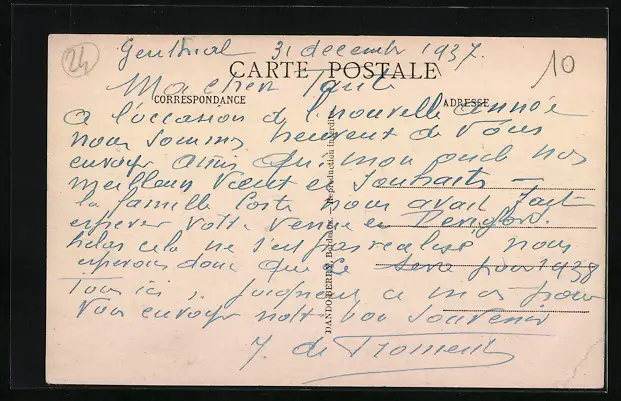 24
31 decembre 1937.
10
CARTE POSTALE
Ma chère Tante
CORRESPONDANCE
ADRESSE
A l'occasion de l'nouvelle année
nous sommes heureux de vous
envoyer ainsi qui mon nos
meilleurs vœux et souhaits —
la famille nous avait fait
esperer votre venue en Perigord.
helas cela ne s'est pas realisé nous
esperons donc que ce sera pour 1938
Tous ici se joignent a moi pour
vous envoyer notre bon souvenir
Y. de Froment
DANDO-BERRY, Bordeaux. — Reproduction interdite